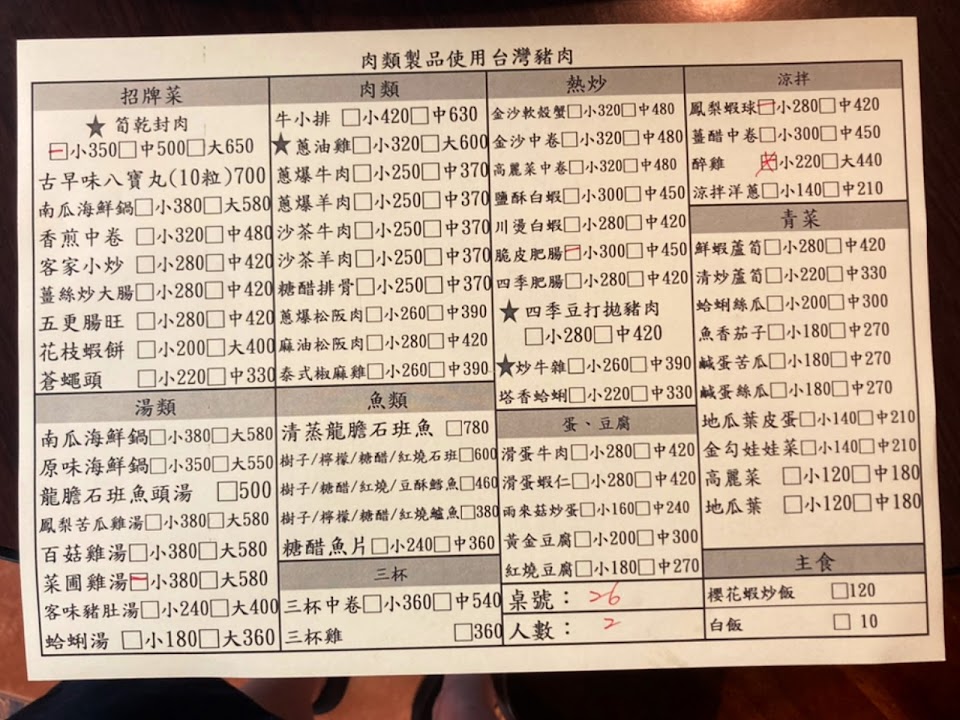 肉類製品使用台灣豬肉
招牌菜
★ 筍乾封肉
小350□中500□大650
古早味八寶丸(10粒)700
南瓜海鮮鍋□小380□大580
香煎中卷 □小320□中480
客家小炒 □小280□中420
薑絲炒大腸□小280□中420
五更腸旺 □小280□中420
花枝蝦餅 □小200□大400
蒼蠅頭 □小220□中330
湯類
南瓜海鮮鍋□小380□大580
原味海鮮鍋□小350□大550
龍膽石班魚頭湯 □500
鳳梨苦瓜雞湯□小380□大580
百菇雞湯□小380□大580
菜圃雞湯□小380□大580
客味豬肚湯□小240□大400
蛤蜊湯 □小180□大360
肉類
牛小排 □小420□中630
★蔥油雞□小320□大600
蔥爆牛肉□小250□中370
蔥爆羊肉□小250□中370
沙茶牛肉□小250□中370
沙茶羊肉□小250□中370
糖醋排骨□小250□中370
蔥爆松阪肉□小260□中390
麻油松阪肉□小280□中420
泰式椒麻雞□小260□中390
魚類
清蒸龍膽石班魚 □780
樹子/檸檬/糖醋/紅燒石班□600
樹子/糖醋/紅燒/豆酥鱈魚□460
樹子/檸檬/糖醋/紅燒鱸魚□380
糖醋魚片□小240□中360
三杯
三杯中卷□小360□中540
三杯雞 □360
熱炒
金沙軟殼蟹□小320□中480
金沙中卷□小320□中480
高麗菜中卷□小320□中480
鹽酥白蝦□小300□中450
川燙白蝦□小280□中420
脆皮肥腸□小300□中450
四季肥腸□小280□中420
★四季豆打拋豬肉
□小280□中420
★炒牛雜□小260□中390
塔香蛤蜊□小220□中330
蛋、豆腐
滑蛋牛肉□小280□中420
滑蛋蝦仁□小280□中420
雨來菇炒蛋□小160□中240
黃金豆腐□小200□中300
紅燒豆腐□小180□中270
桌號： 26
人數： 2
涼拌
鳳梨蝦球□小280□中420
薑醋中卷□小300□中450
醉雞 □小220□大440
涼拌洋蔥□小140□中210
青菜
鮮蝦蘆筍□小280□中420
清炒蘆筍□小220□中330
蛤蜊絲瓜□小200□中300
魚香茄子□小180□中270
鹹蛋苦瓜□小180□中270
鹹蛋絲瓜□小180□中270
地瓜葉皮蛋□小140□中210
金勾娃娃菜□小140□中210
高麗菜 □小120□中180
地瓜葉 □小120□中180
主食
櫻花蝦炒飯 □120
白飯 □ 10